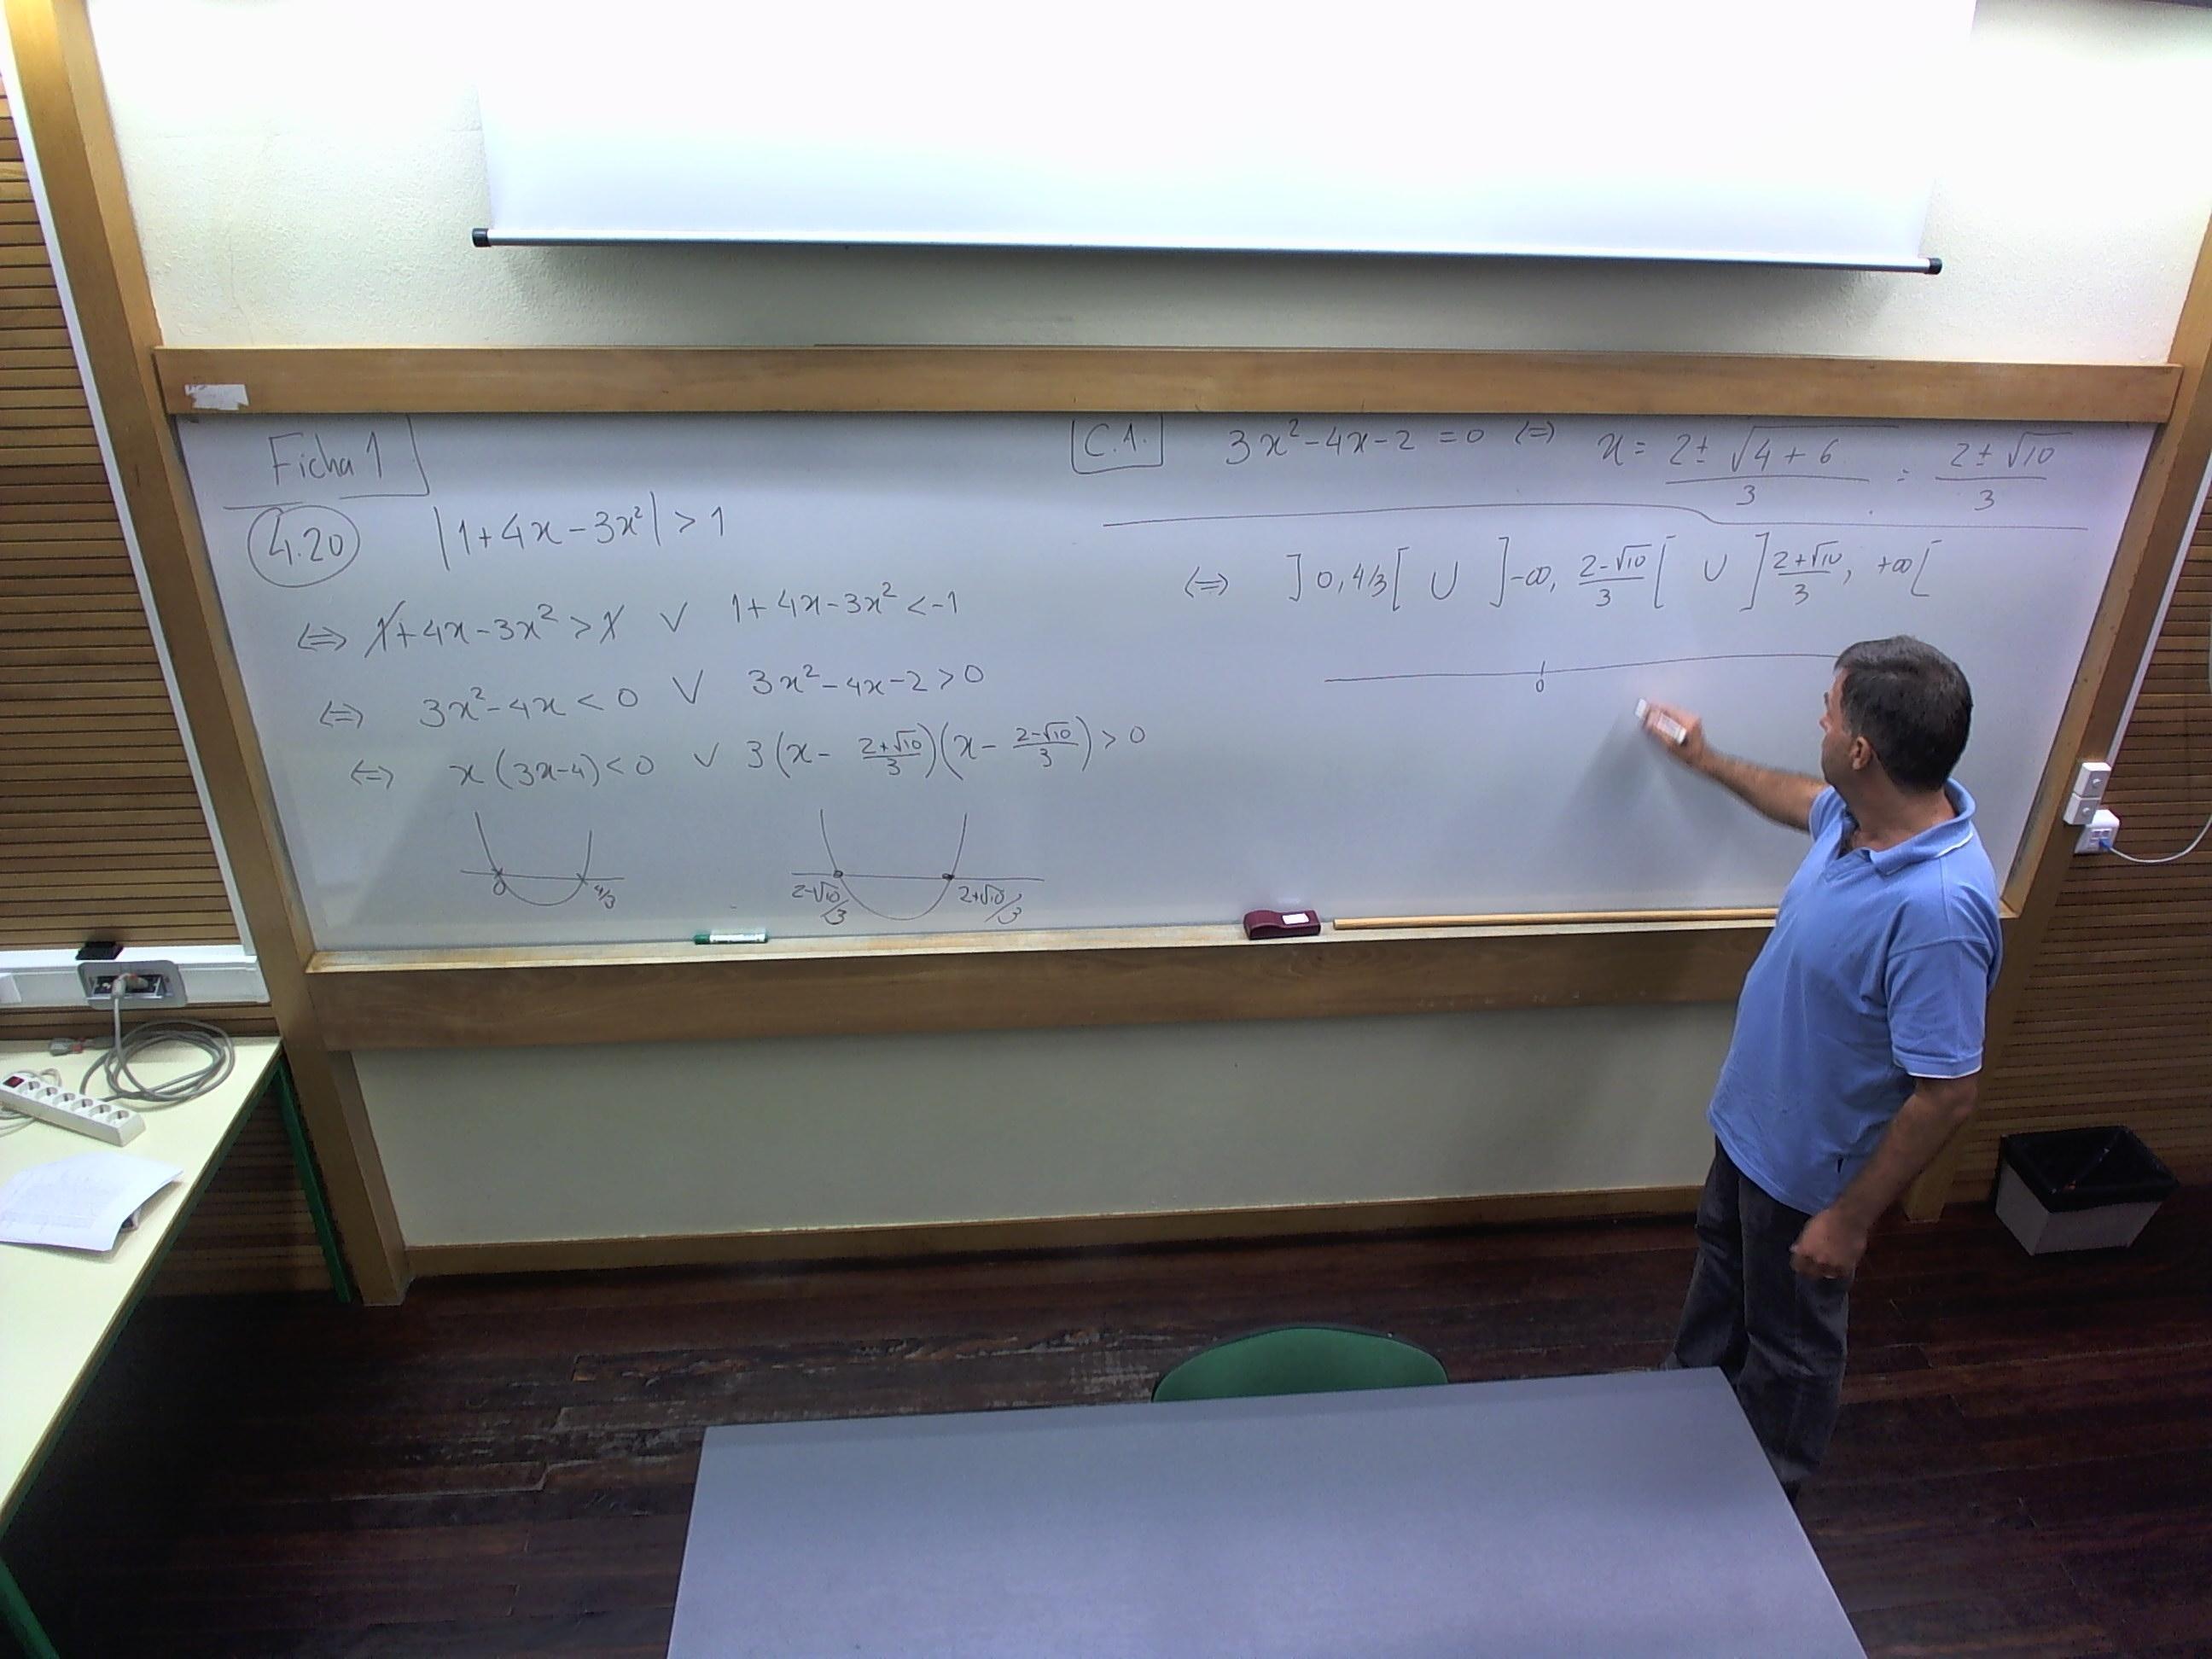 Ficha 1
4.20 |1+4x-3x²| > 1
⇔ 1+4x-3x² > 1 ∨ 1+4x-3x² < -1
⇔ 3x²-4x < 0 ∨ 3x²-4x-2 > 0
⇔ x(3x-4) < 0 ∨ 3(x - (2+√10)/3)(x - (2-√10)/3) > 0
0 4/3 2-√10/3 2+√10/3
C.A. 3x²-4x-2 = 0 ⇔ x = (2±√4+6)/3 = (2±√10)/3
⇔ ]0, 4/3[ ∪ ]-∞, (2-√10)/3[ ∪ ](2+√10)/3, +∞[
0